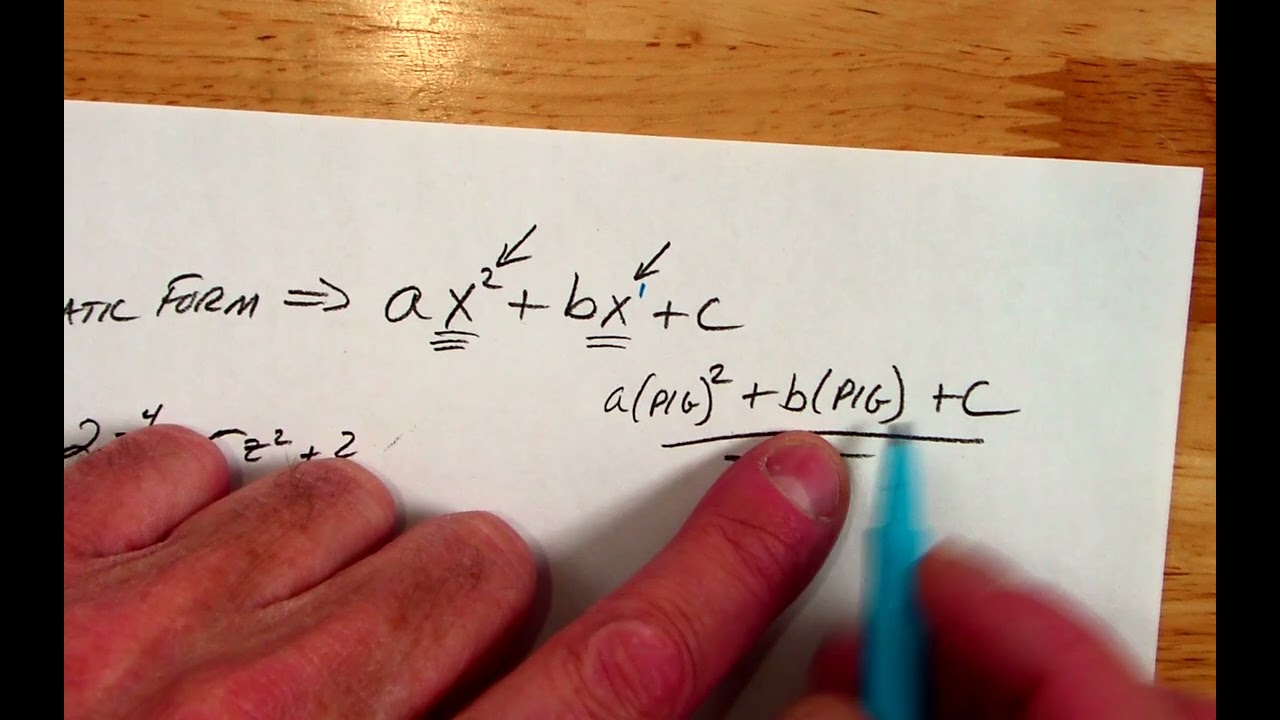 ATIC FORM ⇒ ax² + bx¹ + c
a(PIG)² + b(PIG) + C
z² + 2